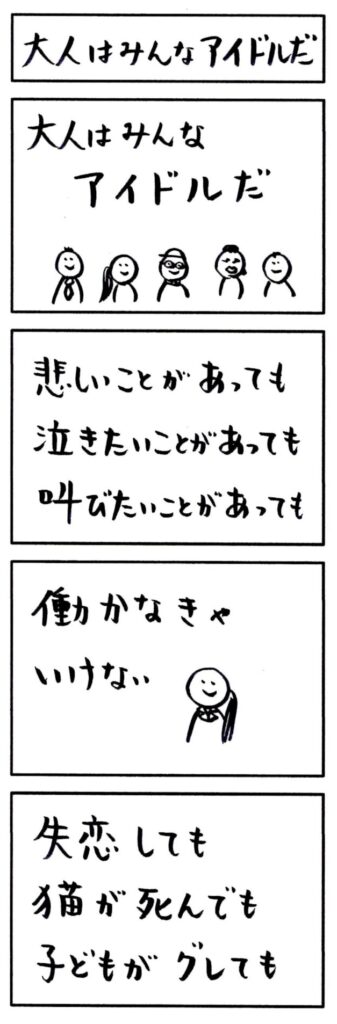 大人はみんなアイドルだ
大人はみんな
アイドルだ
悲しいことがあっても
泣きたいことがあっても
叫びたいことがあっても
働かなきゃ
いけない
失恋しても
猫が死んでも
子どもがグレても